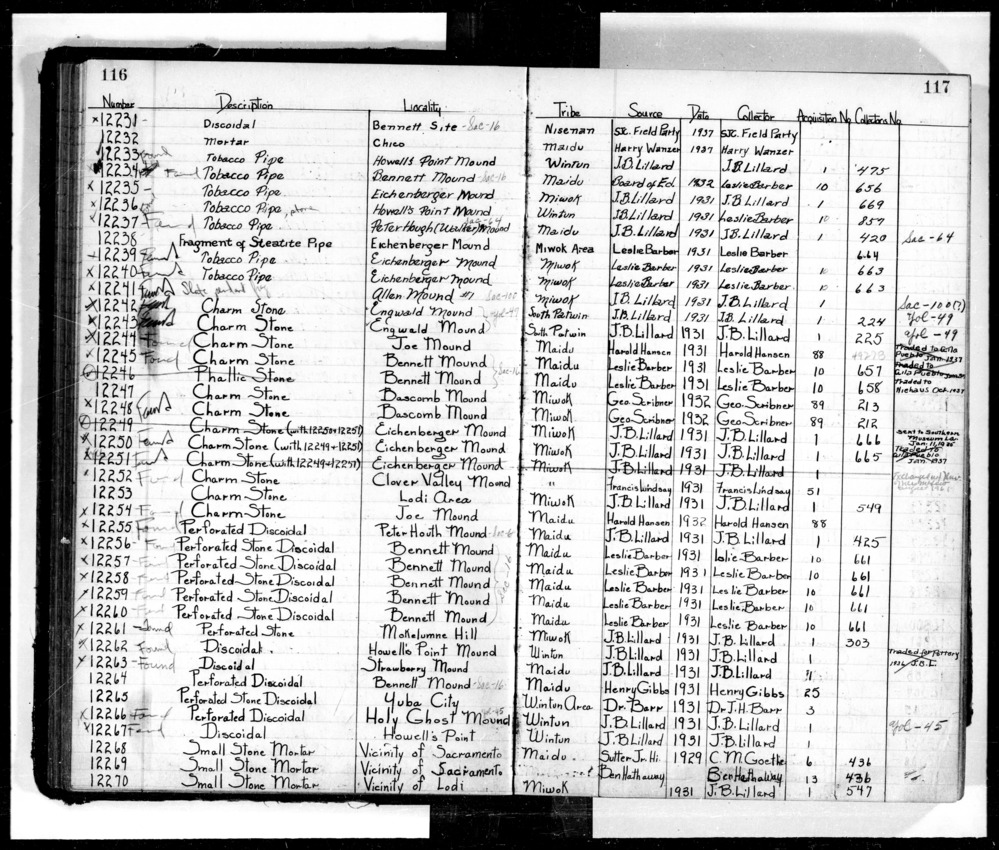 116
117
Number Description Locality Tribe Source Date Collector Acquisition No Collectors No
x12231 - Discoidal Bennett Site - Sac-16 Nisenan S.R. Field Party 1937 S.R. Field Party
12232 Mortar Chico Maidu Harry Wanzer 1937 Harry Wanzer
12233 Found Tobacco Pipe Howell's Point Mound Wintun J.B. Lillard J.B. Lillard 1 475
x12234 Found Tobacco Pipe Bennett Mound - Sac-16 Maidu Board of Ed. 1932 Leslie Barber 10 656
x12235 - Tobacco Pipe Eichenberger Mound Miwok J.B Lillard 1931 J.B Lillard 1 669
x12236 Tobacco Pipe, stone Howell's Point Mound Wintun J.B. Lillard 1931 Leslie Barber 10 857
x12237 Found Tobacco Pipe Peter Hough (Walker) Mound Sac-64 Maidu J.B. Lillard 1931 J.B. Lillard 1 420 Sac-64
12238 Fragment of Steatite Pipe Eichenberger Mound Miwok Area Leslie Barber 1931 Leslie Barber 664
x12239 Found Tobacco Pipe Eichenberger Mound Miwok Leslie Barber 1931 Leslie Barber 10 663
x12240 Found Tobacco Pipe Eichenberger Mound Miwok Leslie Barber 1931 Leslie Barber 10 663
x12241 Found Slate Allen Mound #1 Sac-100 Miwok J.B. Lillard 1931 J.B. Lillard 1 Sac-100(?)
x12242 Found Charm Stone Engwald Mound Yol-49 South Patwin J.B. Lillard 1931 J.B. Lillard 1 224 Yol-49
x12243 Found Charm Stone Engwald Mound South Patwin J.B. Lillard 1931 J.B. Lillard 1 225 Yol-49
x12244 Found Charm Stone Joe Mound Maidu Harold Hansen 1931 Harold Hansen 88 Traded to Gila Pueblo Jan. 1937
x12245 Found Charm Stone Bennett Mound Sac-16 Maidu Leslie Barber 1931 Leslie Barber 10 657 Traded to Gila Pueblo
12246 Phallic Stone Bennett Mound Maidu Leslie Barber 1931 Leslie Barber 10 658 Traded to Niehaus Oct. 1937
12247 Charm Stone Bascomb Mound Miwok Geo. Scribner 1932 Geo. Scribner 89 213
x12248 Found Charm Stone Bascomb Mound Miwok Geo. Scribner 1932 Geo. Scribner 89 212
12249 Charm Stone (with 12250+12251) Eichenberger Mound Miwok J.B. Lillard 1931 J.B. Lillard 1 666 Sent to Southern Museum
x12250 Found Charm Stone (with 12249+12251) Eichenberger Mound Miwok J.B. Lillard 1931 J.B. Lillard 1 665 Traded to Gila Pueblo Jan. 1937
x12251 Found Charm Stone (with 12249+12251) Eichenberger Mound Miwok J.B. Lillard 1931 J.B. Lillard 1
12252 Found Charm Stone Clover Valley Mound " Francis Lindsay 1931 Francis Lindsay 51
12253 Charm Stone Lodi Area Miwok J.B. Lillard 1931 J.B. Lillard 1 549
x12254 Found Charm Stone Joe Mound Maidu Harold Hansen 1932 Harold Hansen 88
x12255 Found Perforated Discoidal Peter Houth Mound Maidu J.B. Lillard 1931 J.B. Lillard 1 425
x12256 - Found Perforated Stone Discoidal Bennett Mound Maidu Leslie Barber 1931 Leslie Barber 10 661
x12257 - Found Perforated Stone Discoidal Bennett Mound Maidu Leslie Barber 1931 Leslie Barber 10 661
x12258 - Found Perforated Stone Discoidal Bennett Mound Sac-16 Maidu Leslie Barber 1931 Leslie Barber 10 661
x12259 Found Perforated Stone Discoidal Bennett Mound Maidu Leslie Barber 1931 Leslie Barber 10 661
x12260 - Found Perforated Stone Discoidal Bennett Mound Maidu Leslie Barber 1931 Leslie Barber 10 661
x12261 - Found Perforated Stone Mokelumne Hill Miwok J.B. Lillard 1931 J.B. Lillard 1 303
x12262 Found Discoidal Howells Point Mound Wintun J.B. Lillard 1931 J.B. Lillard 1 Traded for Pottery 1936 J.B.L.
x12263 - Found Discoidal Strawberry Mound Maidu J.B. Lillard 1931 J.B. Lillard 1
12264 Perforated Discoidal Bennett Mound - Sac-16 Maidu Henry Gibbs 1931 Henry Gibbs 25
12265 Perforated Stone Discoidal Yuba City Wintun Area Dr. Barr 1931 Dr. J.H. Barr 3
x12266 Found Perforated Discoidal Holy Ghost Mound Yol-45 Wintun J.B. Lillard 1931 J.B. Lillard 1 Yol-45
x12267 Found Discoidal Howell's Point Wintun J.B. Lillard 1931 J.B. Lillard 1
12268 Small Stone Mortar Vicinity of Sacramento Maidu Sutter Jr. Hi. 1929 C.M Goethe 6 436
12269 Small Stone Mortar Vicinity of Sacramento Ben Hathaway Ben Hathaway 13 436
12270 Small Stone Mortar Vicinity of Lodi Miwok 1931 J.B. Lillard 1 547